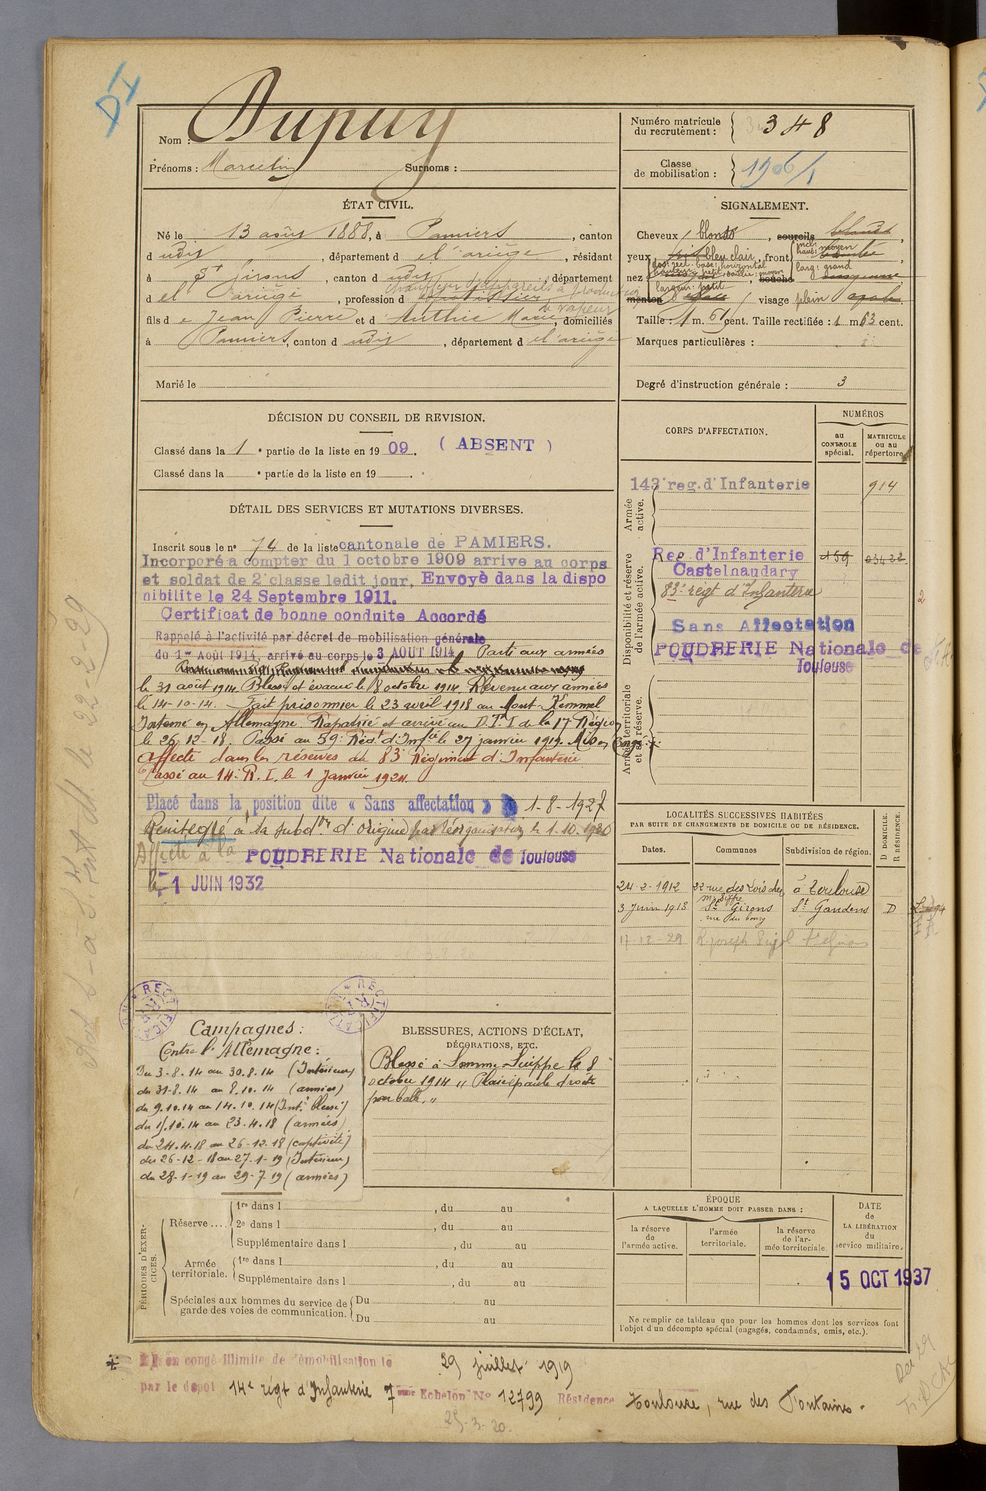 DI
Nom : Dupuy
Prénoms : Marcelin Surnoms :
Numéro matricule du recrutement : 348
Classe de mobilisation : 1906/1
ÉTAT CIVIL.
Né le 13 août 1888, à Pamiers, canton
d udis, département d el'ariège, résidant
à St Girons, canton d udis, département
d el'ariège, profession d
chauffeur d'appareils à production de vapeur
fils de Jean Pierre et d Authié Marie, domiciliés
à Pamiers, canton d udis, département d el'ariège
Marié le
SIGNALEMENT.
Cheveux blonds, sourcils blonds,
yeux bleu clair, front incl: moyen haut: moyen larg: grand
nez dos: rect. base: horizontal bouche
largeur: petit
menton visage plein ovale
Taille : 1 m. 61 cent. Taille rectifiée : 1 m 63 cent.
Marques particulières :
Degré d'instruction générale : 3
DÉCISION DU CONSEIL DE REVISION.
Classé dans la 1 e partie de la liste en 1909. ( ABSENT )
Classé dans la e partie de la liste en 19 .
CORPS D'AFFECTATION.
NUMÉROS
au CONTROLE spécial.
MATRICULE ou au répertoire.
Armée active.
143e reg. d'Infanterie 914
Disponibilité et réserve de l'armée active.
Reg. d'Infanterie Castelnaudary 159 03422
83e régt d'Infanterie
Sans Affectation
POUDRERIE Nationale de Toulouse
Armée territoriale et sa réserve.
DÉTAIL DES SERVICES ET MUTATIONS DIVERSES.
Inscrit sous le n° 74 de la liste cantonale de PAMIERS.
Incorporé à compter du 1 octobre 1909 arrive au corps
et soldat de 2e classe ledit jour. Envoyé dans la dispo
nibilite le 24 Septembre 1911.
Certificat de bonne conduite Accordé
Rappelé à l'activité par décret de mobilisation générale
du 1er Août 1914, arrivé au corps le 3 AOUT 1914 Parti aux armées
le 31 août 1914. Blessé et évacué le 8 octobre 1914. Revenu aux armées
le 14-10-14. Fait prisonnier le 23 avril 1918 au Mont Kemmel
Interné en Allemagne. Rapatrié et arrivé au D.I. de la 17e Région
le 26-12-18. Passé au 59e Régt d'Infie le 27 janvier 1919. Mis en Congé
Affecté dans les réserves au 83e Régiment d'Infanterie
Passé au 14e R.I. le 1 Janvier 1924
Placé dans la position dite « Sans affectation » 1-8-1927
Réintégré à la subdon d'origine par réorganisation le 1.10.1930
Affecté à la POUDRERIE Nationale de Toulouse
le 1 JUIN 1932
LOCALITÉS SUCCESSIVES HABITÉES
PAR SUITE DE CHANGEMENTS DE DOMICILE OU DE RÉSIDENCE.
Dates. Communes Subdivision de région. D DOMICILE. R RÉSIDENCE.
24-2-1912 22 rue des Lois chez à Toulouse
3 Juin 1913 St Girons rue du bourg St Gaudens D
17-12-29 R. Joseph
RECTIFICATION
RECTIFICATION
Campagnes :
Contre l'Allemagne :
Du 3-8-14 au 30.8.14 (Intérieur)
du 31-8-14 au 8.10.14 (armées)
du 9.10.14 au 14.10.14 (Int. blessé)
du 15.10.14 au 23.4.18 (armées)
du 24.4.18 au 26-12.18 (captivité)
du 26-12-18 au 27-1-19 (Intérieur)
du 28-1-19 au 29-7-19 (armées)
BLESSURES, ACTIONS D'ÉCLAT,
DÉCORATIONS, ETC.
Blessé à Somme-Suippe le 8
octobre 1914 " Plaie épaule droite
par balle. "
PÉRIODES D'EXERCICES.
Réserve .... 1re dans l , du au
2e dans l , du au
Supplémentaire dans l , du au
Armée territoriale. 1re dans l , du au
Supplémentaire dans l , du au
Spéciales aux hommes du service de garde des voies de communication. Du au
Du au
ÉPOQUE
A LAQUELLE L'HOMME DOIT PASSER DANS :
la réserve de l'armée active.
l'armée territoriale.
la réserve de l'armée territoriale
DATE de LA LIBÉRATION du service militaire.
15 OCT 1937
Ne remplir ce tableau que pour les hommes dont les services font
l'objet d'un décompte spécial (engagés, condamnés, omis, etc.).
en congé illimité de démobilisation le 29 juillet 1919
par le dépôt 14e régt d'Infanterie 7ème Echelon No 12799 Résidence Toulouse, rue des Fontaines.
25-3-20.